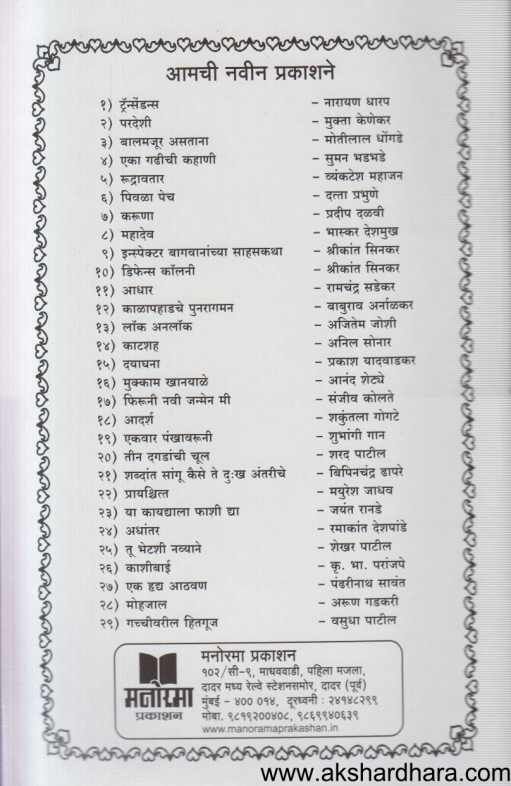 आमची नवीन प्रकाशने
१) ट्रॅन्सेंडन्स – नारायण धारप
२) परदेशी – मुक्ता केणेकर
३) बालमजूर असताना – मोतीलाल धोंगडे
४) एका गढीची कहाणी – सुमन भडभडे
५) रूद्रावतार – व्यंकटेश महाजन
६) पिवळा पेच – दत्ता प्रभुणे
७) करूणा – प्रदीप दळवी
८) महादेव – भास्कर देशमुख
९) इन्स्पेक्टर बागवानांच्या साहसकथा – श्रीकांत सिनकर
१०) डिफेन्स कॉलनी – श्रीकांत सिनकर
११) आधार – रामचंद्र सडेकर
१२) काळापहाडचे पुनरागमन – बाबुराव अर्नाळकर
१३) लॉक अनलॉक – अजितेम जोशी
१४) काटशह – अनिल सोनार
१५) दयाघना – प्रकाश यादवाडकर
१६) मुक्काम खानयाळे – आनंद शेट्ये
१७) फिरूनी नवी जन्मेन मी – संजीव कोलते
१८) आदर्श – शकुंतला गोगटे
१९) एकवार पंखावरूनी – शुभांगी गान
२०) तीन दगडांची चूल – शरद पाटील
२१) शब्दांत सांगू कैसे ते दुःख अंतरीचे – बिपिनचंद्र डापरे
२२) प्रायश्चित्त – मयुरेश जाधव
२३) या कायद्याला फाशी द्या – जयंत रानडे
२४) अधांतर – रमाकांत देशपांडे
२५) तू भेटशी नव्याने – शेखर पाटील
२६) काशीबाई – कृ. भा. परांजपे
२७) एक हृद्य आठवण – पंढरीनाथ सावंत
२८) मोहजाल – अरूण गडकरी
२९) गच्चीवरील हितगूज – वसुधा पाटील
मनोरमा
प्रकाशन
मनोरमा प्रकाशन
१०२/सी-९, माधववाडी, पहिला मजला,
दादर मध्य रेल्वे स्टेशनसमोर, दादर (पूर्व)
मुंबई – ४०० ०१४, दूरध्वनी : २४१४८२९९
मोबा. ९८१९२००४८, ९८६९९४०६३९
www.manoramaprakashan.in
www.akshardhara.com